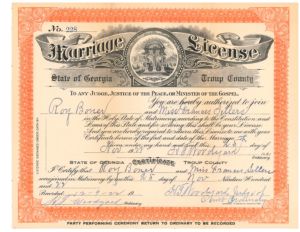 No. 228
Marriage License
State of Georgia Troup County
To any Judge, Justice of the Peace, or Minister of the Gospel.
You are hereby authorized to join
Roy Boner and Miss Frances Sellers
in the Holy State of Matrimony according to the Constitution and
Laws of this State and for so doing this shall be your License.
And you are hereby required to return this License to me with your
Certificate hereon of the fact and date of the Marriage.
Given under my hand and seal this 28
State of Georgia Certificate Troup County
I Certify that Roy Boner and Miss Frances Sellers
were joined in Matrimony by me this 28 day of Nov Nineteen Hundred
and 22
Recorded
Party performing ceremony return to Ordinary to be recorded